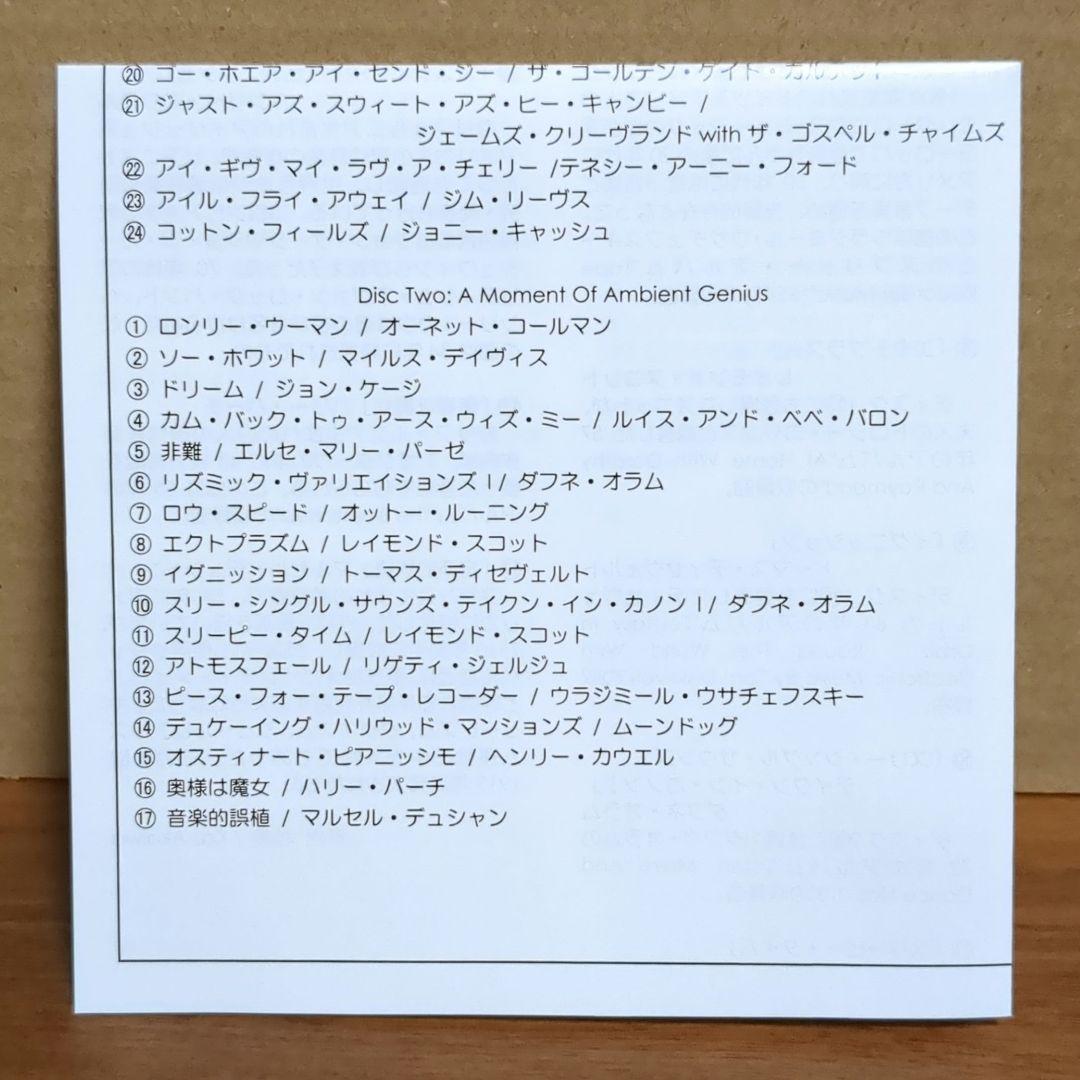 ⑳ ゴー・ホエア・アイ・センド・ジー / ザ・ゴールデン・ゲイト・カルテット
㉑ ジャスト・アズ・スウィート・アズ・ヒー・キャンビー /
ジェームズ・クリーヴランド with ザ・ゴスペル・チャイムズ
㉒ アイ・ギヴ・マイ・ラヴ・ア・チェリー /テネシー・アーニー・フォード
㉓ アイル・フライ・アウェイ / ジム・リーヴス
㉔ コットン・フィールズ / ジョニー・キャッシュ
Disc Two: A Moment Of Ambient Genius
① ロンリー・ウーマン / オーネット・コールマン
② ソー・ホワット / マイルス・デイヴィス
③ ドリーム / ジョン・ケージ
④ カム・バック・トゥ・アース・ウィズ・ミー / ルイス・アンド・ベベ・バロン
⑤ 非難 / エルセ・マリー・パーゼ
⑥ リズミック・ヴァリエイションズ I / ダフネ・オラム
⑦ ロウ・スピード / オットー・ルーニング
⑧ エクトプラズム / レイモンド・スコット
⑨ イグニッション / トーマス・ディセヴェルト
⑩ スリー・シングル・サウンズ・テイクン・イン・カノン I / ダフネ・オラム
⑪ スリーピー・タイム / レイモンド・スコット
⑫ アトモスフェール / リゲティ・ジェルジュ
⑬ ピース・フォー・テープ・レコーダー / ウラジミール・ウサチェフスキー
⑭ デュケーイング・ハリウッド・マンションズ / ムーンドッグ
⑮ オスティナート・ピアニッシモ / ヘンリー・カウエル
⑯ 奥様は魔女 / ハリー・パーチ
⑰ 音楽的誤植 / マルセル・デュシャン